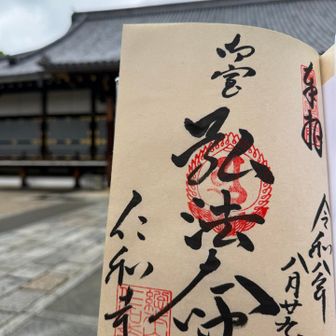 奉拝
令和八年
八月廿九
御室
弘法大師
仁和寺